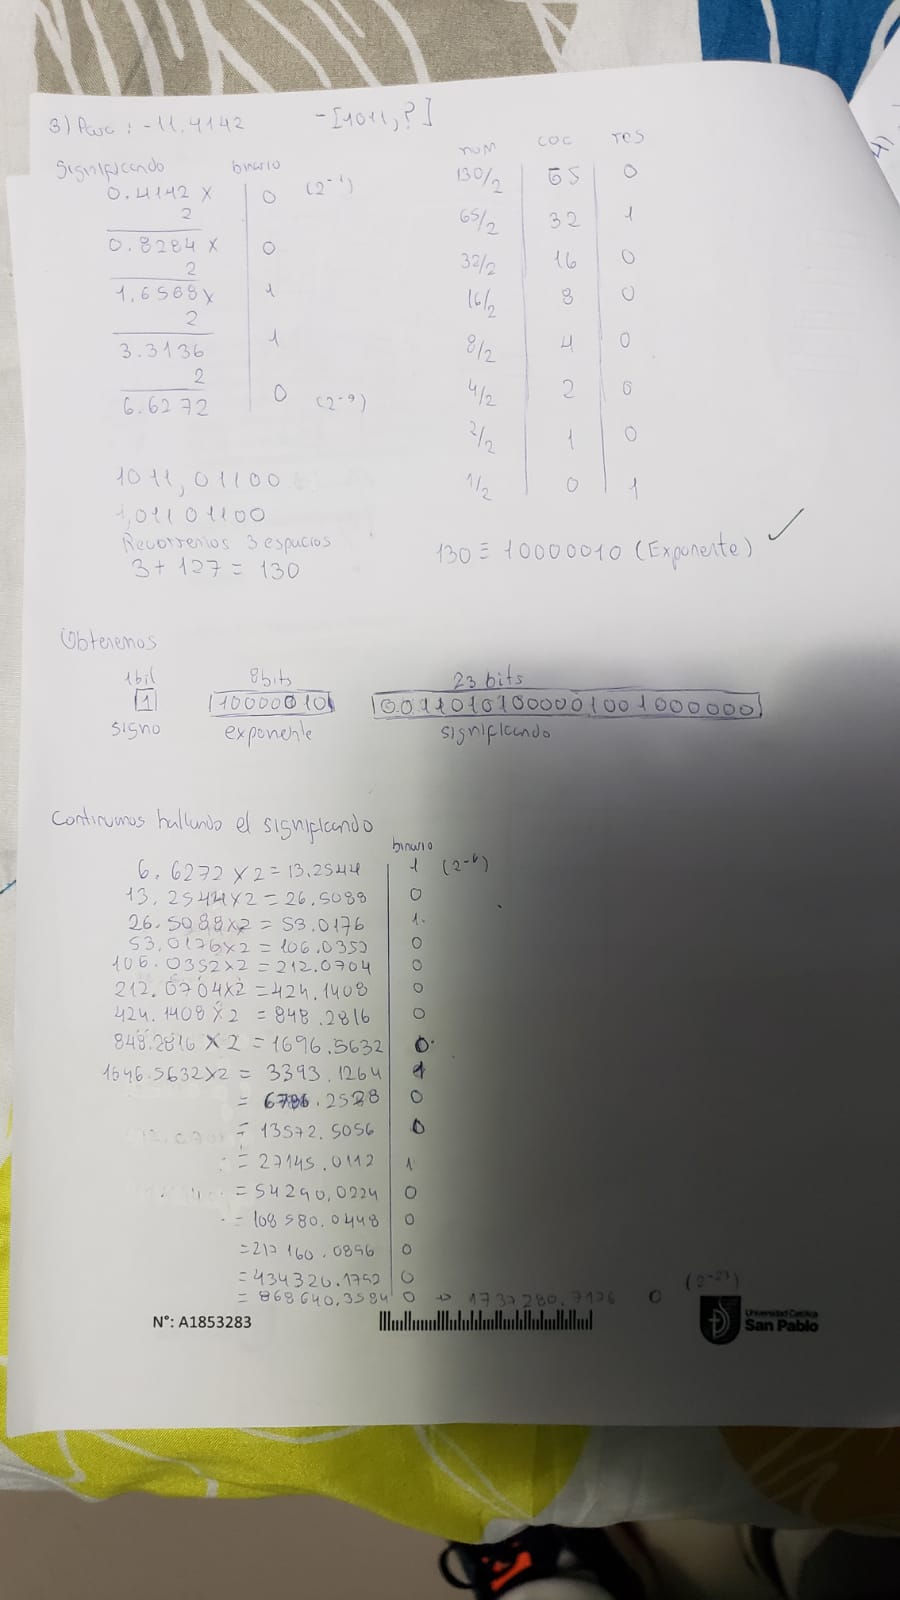 3) Para : -11.4142    -[1011,?]
Significando    binario
0.4142 x    0    (2⁻¹)
2
0.8284 x    0
2
1,6568x    1
2
3.3136    1
2
6.6272    0    (2⁻⁹)
1011,01100
1,01101100
Recorremos 3 espacios
3 + 127 = 130
num    coc    res
130/2    65    0
65/2    32    1
32/2    16    0
16/2    8    0
8/2    4    0
4/2    2    0
2/2    1    0
1/2    0    1
130 ≡ 10000010 (Exponente)
Obtenemos
1bit    8bits    23 bits
1    10000010    00110101000001001000000
signo    exponente    significando
Continuamos hallando el significando
binario
6.6272 x 2 = 13.2544    1    (2⁻⁶)
13.2544x2 = 26.5088    0
26.5088x2 = 53.0176    1
53.0176x2 = 106.0352    0
106.0352x2 = 212.0704    0
212.0704x2 = 424.1408    0
424.1408 x 2 = 848.2816    0
848.2816 x 2 = 1696.5632    0
1696.5632x2 = 3393.1264    1
= 6786.2528    0
= 13572.5056    0
= 27145.0112    1
= 54290,0224    0
= 108580.0448    0
= 217160.0896    0
= 434320.1792    0
= 868640.3584    0    → 1737280.7136    0    (2⁻²³)
N°: A1853283
Universidad Católica
San Pablo